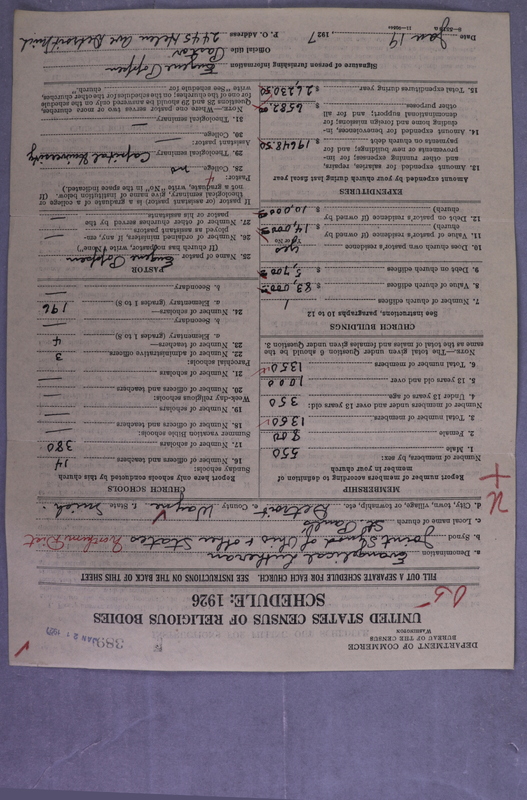 DEPARTMENT OF COMMERCE
BUREAU OF THE CENSUS
WASHINGTON
JAN 21 1927
UNITED STATES CENSUS OF RELIGIOUS BODIES
SCHEDULE: 1926
FILL OUT A SEPARATE SCHEDULE FOR EACH CHURCH. SEE INSTRUCTIONS ON THE BACK OF THIS SHEET
a. Denomination Evangelical Lutheran
b. Synod Joint Synod of Ohio & other States Northern Dist
c. Local name of church St. Paul's
d. City, town, village, or township, etc. Detroit e. County Wayne f. State Mich.
MEMBERSHIP
Report number of members according to definition of member in your church
Number of members, by sex:
1. Male 550
2. Female 800
3. Total number of members 1350
Number of members under and over 13 years old:
4. Under 13 years of age 350
5. 13 years old and over 1000
6. Total number of members 1350
NOTE.—The total given under Question 6 should be the same as the total of males and females given under Question 3.
CHURCH BUILDINGS
See instructions, paragraphs 10 to 12
7. Number of church edifices 1
8. Value of church edifices $ 83,000.00
9. Debt on church edifices $ 5,700.00
10. Does church own pastor's residence yes
(Yes or No)
11. Value of pastor's residence (if owned by church) $ 14,000.00
12. Debt on pastor's residence (if owned by church) $ 10,000.00
EXPENDITURES
Amount expended by your church during last fiscal year
13. Amount expended for salaries, repairs, and other running expenses; for improvements or new buildings; and for payments on church debt $ 19648.50
14. Amount expended for benevolences, including home and foreign missions; for denominational support; and for all other purposes $ 6582.00
15. Total expenditures during year $ 26,230.50
CHURCH SCHOOLS
Report here only schools conducted by this church
Sunday schools:
16. Number of officers and teachers 14
17. Number of scholars 380
Summer vacation Bible schools:
18. Number of officers and teachers —
19. Number of scholars —
Week-day religious schools:
20. Number of officers and teachers —
21. Number of scholars —
Parochial schools:
22. Number of administrative officers 3
23. Number of teachers—
a. Elementary (grades 1 to 8) 4
b. Secondary —
24. Number of scholars—
a. Elementary (grades 1 to 8) 196
b. Secondary —
PASTOR
25. Name of pastor Eugene Poppen
(If church has no pastor, write "None")
26. Number of ordained ministers, if any, employed as assistant pastors —
27. Number of other churches served by the pastor or his assistant —
(If pastor (or assistant pastor) is a graduate of a college or theological seminary, give name of institution below. (If not a graduate, write "No" in the space indicated.)
Pastor:
28. College no
29. Theological seminary Capital University
Assistant pastor:
30. College —
31. Theological seminary —
NOTE.—Where one pastor serves two or more churches, Questions 28 and 29 should be answered only on the schedule for one of the churches; on the schedules for the other churches, write "See schedule for church."
Signature of person furnishing information Eugene Poppen
Official title Pastor
Date Jan 19, 1927 P. O. Address 2445 Helen Ave Detroit Mich